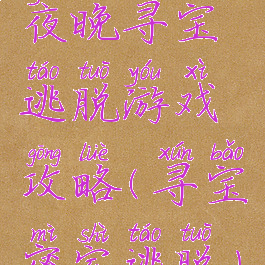 夜晚寻宝
táo tuō yóu xì
逃脱游戏
gōng lüè xún bǎo
攻略(寻宝
mì shì táo tuō
密室逃脱)